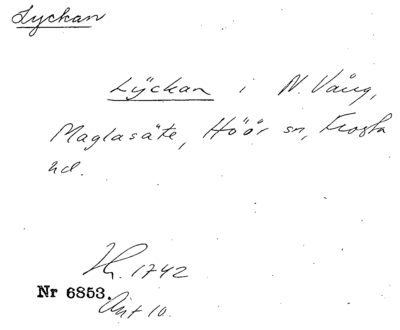 Lyckan
Lÿckan i N. Vång,
Maglasäte, Höör sn, Frosta
hd.
H. 1742
Nr 6853.
Akt 10.